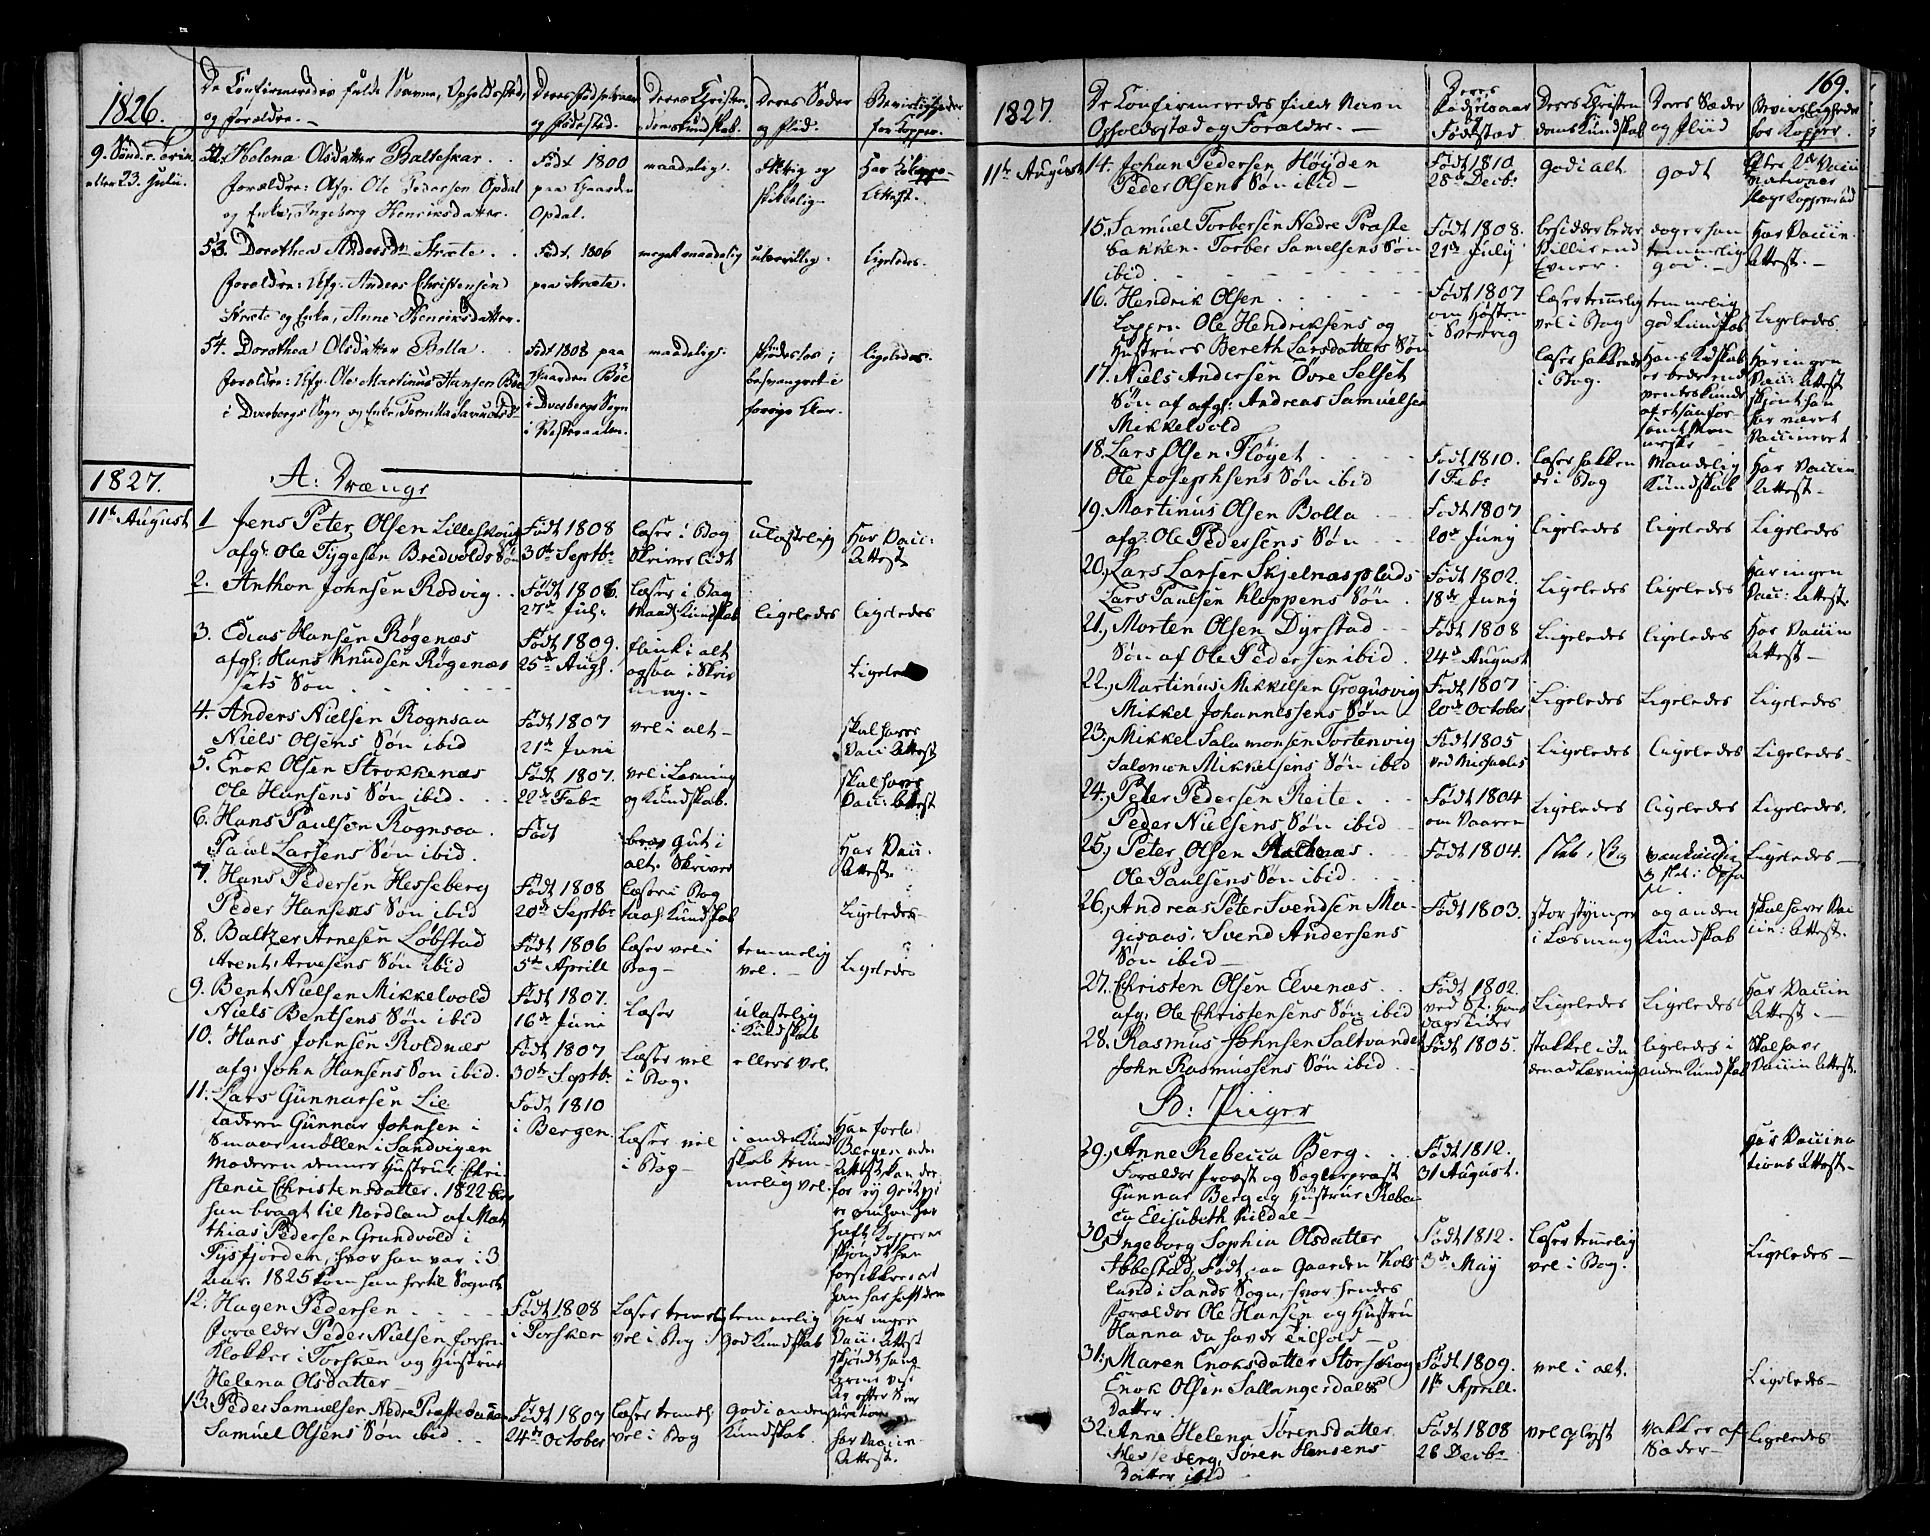 1826.
De Confirmeredes fulde Navne, Opholdssted,
og Forældre. —
Deres Fødselsaar
og Fødested.
Deres Christen-
domskundskab.
Deres Sæder
og Flid.
Beviisligheder
for Kopper.
9. Sønd. e. Trin.
eller 23. Julii.
52. Helena Olsdatter Balteskar
Forældre: Afg. Ole Pedersen Opdal
og Enke, Ingeborg Henriksdatter.
Født 1800
paa Gaarden
Opdal.
maadelig.
og
skikkelig
Har
Attest.
53. Dorothea Andersdtr Stræte
Forældre: Afg. Anders Christensen
Stræte og Enke, Anne Henriksdatter.
Født 1806
paa Stræte.
meget maadelig
ligeledes.
54. Dorothea Olsdatter Bolla
Forældre: Afg. Ole Martinus Hansen Böe
i Dverbergs Sogn og Enke Pernilla
Født 1808 paa
Gaarden Böe
i Dverbergs Sogn
i Vesteraalen.
maadelig.
skjødesløs;
besvangret i
forrige Aar.
ligeledes.
1827.
A: Drænge
11te August
1 Jens Peter Olsen Lilleskoug
afg: Ole Tygesen Bredvolds Søn
Født 1808
30te Septbr
læser i Bog
Skriver lidt
ulastelig
Har Vacc:
Attest
2. Anthon Johnsen Rodvig
Født 1806.
27de Jul:
læser i Bog
Maadl Kundskab
ligeledes
ligeledes
3. Edias Hansen Røgenæs
afg: Hans Knudsen Røgenæs
sets Søn
Født 1809.
25de Augs.
flink i alt
ogsaa i Skriv
ning. —
Ligeledes
4. Anders Nielsen Rognsaa
Niels Olsens Søn ibid
Født 1807
21de Juni
vel i alt —
skal have
Vacc: Attest
5. Enok Olsen Strokkenæs
Ole Hansens Søn ibid.
Født 1807.
22de Febr
vel i Læsning
og Kundskab.
skal have
Vacc: Attest
6. Hans Paulsen Rognsaa
Paul Larsens Søn ibid.
Født
gut i
alt. Skriver
Har Vacc.
Attest.
7. Hans Pedersen Hesseberg
Peder Hansens Søn ibid
Født 1808
20de Septbr
læser i Bog
Kundskab
Ligeledes
8. Baltzer Arnesen Løbstad
Arent Arnesens Søn ibid
Født 1806
5te Aprill
læser vel i
Bog —
temmelig
vel. —
Ligeledes
9. Bent Nielsen Mikkelvold
Niels Bentsens Søn ibid
Født 1807.
16de Juni
Læser
ulastelig
i Kundskab
10. Hans Johnsen Roldnæs
afg: John Hansens Søn ibid.
Født 1807
30te Septbr
Læser vel
i Bog.
ellers vel.
11. Lars Gunnarsen Lie
Faderen Gunnar Johnsen i
Smaavmøllen i Sandvigen
Moderen dennes Hustrue Chri-
stence Christensdatter. 1822 blev
han bragt til Nordland af Mat
thias Pedersen Grundvold i
Tysfjorden, hvor han var i 3
Aar. 1825 kom han her til Sognet
Født 1810
i Bergen.
Læser vel
i Bog —
i anden Kund
skab tem-
melig vel.
Han forlod
Bergen uden
Attest
haft Kopperne
skjøndt han
forsikkrer at
han har haft dem
12. Hagen Pedersen
Forældre Peder Nielsen forhen
Klokker i Torsken og Hustrue
Helena Olsdatter —
Født 1808
i Torsken
Læser temelig
vel i Bog
temmelig
god Kundskab
Har ingen
Vacc: Attest
skjøndt han
13. Peder Samuelsen Nedre Præstebakken
Samuel Olsens Søn ibid
Født 1807
24de October
læser temel.
vel i Bog
god i anden
Kundskab
Har Vaccin-
Attest.
169.
1827.
De Confirmeredes fulde Navn
Opholdsstæd og Forældre. —
Deres
Fødselsaar
og
Fødestæd
Deres Christen
doms Kundskab
Deres Sæder
og Fliid
Beviisligheder
for Kopper.
11te August
14. Johan Pedersen Høyden
Peder Olsens Søn ibid —
Født 1810
28de Decbr
god i alt
godt
Vacci
nationer
15. Samuel Torbersen Nedre Præste
bakken. Torber Samuelsens Søn
ibid.
Født 1808.
21de July
besidder bedre
Villie end
Evner.
dog er han
temmelig
god. —
Har Vaccin.
Attest. —
16. Hendrik Olsen
Lappen Ole Hendriksens og
Hustrues Bereth Larsdatters Søn
Født 1807
om Høsten
i Sverrig
læser temmelig
vel i Bog
temmelig
god Kundskab
Ligeledes
17. Niels Andersen Øvre Selset
Søn af afg: Andreas Samuelsen
Mikkelvold
læser hakkende
i Bog.
Hans Kundskab
er bedre end
ventes kunde
af et saa for-
sømt Men
neske —
Har ingen
Vacc: Attest
skjønt han
har været
Vaccineret
18. Lars Olsen Fløyet
Ole Josephsens Søn ibid
Født 1810.
1 Febr
læser hakken
de i Bog
Maadelig
Kundskab
Har Vaccin
Attest —
19. Martinus Olsen Bolla
afg: Ole Pedersens Søn
Født 1807
20de Juny
ligeledes
ligeledes
Ligeledes
20. Lars Larsen Skjelnæsplads
Lars Paulsen Kloppens Søn
Født 1802.
18de Juny
Ligeledes
ligeledes
Har ingen
Vacc: Attest
21. Morten Olsen Dyrstad
Søn af Ole Pedersen ibid
Født 1808
24de August
Ligeledes
ligeledes
Har Vaccin
Attest —
22. Martinus Mikkelsen Grogusvig
Mikkel Johannessens Søn
Født 1807
20de October
Ligeledes
Ligeledes
Ligeledes
23. Mikkel Salamonsen Tortenvig
Salomon Mikkelsens Søn ibid
Født 1805
ved Michaelis
Ligeledes
ligeledes
Ligeledes
24. Peter Pedersen Reite
Peder Nielsens Søn ibid
Født 1804
om Vaaren
Ligeledes
ligeledes
Ligeledes.
25. Peter Olsen
Ole Paulsens Søn ibid
Født 1804.
slet i Bog
vankundig
Ligeledes —
26. Andreas Peter Svendsen Ma-
gisaas, Svend Andersens
Søn ibid —
Født 1803.
stor stymper
i Læsning
og anden
Kundskab
skal have Vac
cin: Attest.
27. Christen Olsen Elvenæs
afg: Ole Christensens Søn ibid
Født 1802
ved St. Hans
dags Tider
Ligeledes
Ligeledes
Har Vaccin
Attest. —
28. Rasmus Johnsen Saltvandet
John Rasmussens Søn ibid
Født 1805.
stakkel i In
denad Læsning
ligeledes i
anden Kundskab
Skal have
Vaccin Attest.
B: Piiger
29. Anne Rebecca Berg
Forældre Provst og Sognepræst
Gunnar Berg og Hustrue Rebec
ca Elisabeth Kildal —
Født 1812.
31 August.
Har Vaccina
tions Attest —
30. Ingeborg Sophia Olsdatter
Ibbestad, Født paa Gaarden
lund i Sands Sogn, hvor hendes
Forældre Ole Hansen og Hustru
Hanna da havde Tilhold —
Født 1812.
3de May
læser temelig
vel i Bog.
Ligeledes —
31. Maren Enoksdatter Storskog
Enok Olsen Sallangerdalens
Datter
Født 1809.
11te Aprill.
vel i alt.
Ligeledes —
32. Anne Helena Sørensdatter
Hesseberg, Søren Hansens
Datter ibid —
Født 1808
26 Decbr
vel oplyst
vakker af
Sæder —
Ligeledes